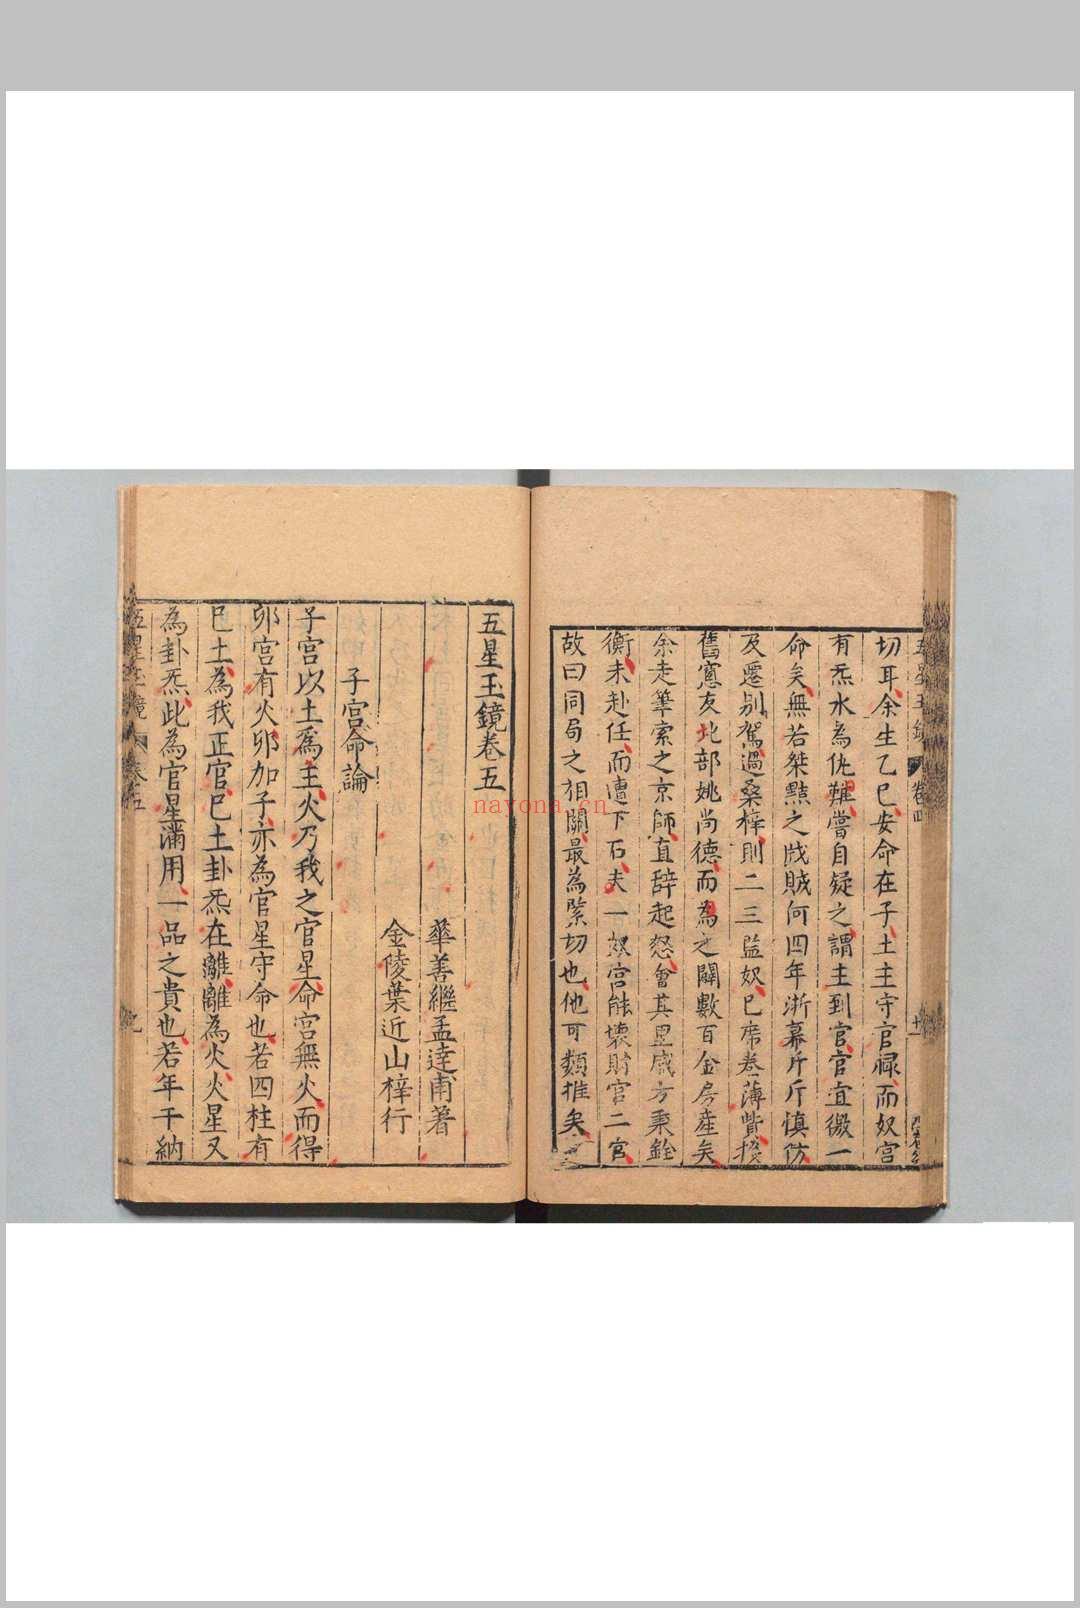 五星玉鏡 卷四
十一
切耳余生乙巳安命在子土主守官祿而奴宮
有炁水為仇難嘗自疑之謂土到官官宜徼一
命矣無若桀黠之戕賊何四年浙幕斤斤慎防
及遷別駕過桑梓則二三監奴已席卷薄貲投
舊憲友北部姚尚德而為之闢數百金房產矣
余走筆索之京師直辭起怒會其思感方秉銓
衡未赴任而遭下石夫一奴宮能壞財官二宮
故曰同局之相關最為緊切也他可類推矣
五星玉鏡卷五
華善繼孟達甫著
金陵葉近山梓行
子宮命論
子宮以土為主火乃我之官星命宮無火而得
卯宮有火卯加子亦為官星守命也若四柱有
巳土為我正官巳土卦炁在離離為火火星又
為卦炁此為官星滿用一品之貴也若年干納
五星玉鏡 卷五
nayona.cn